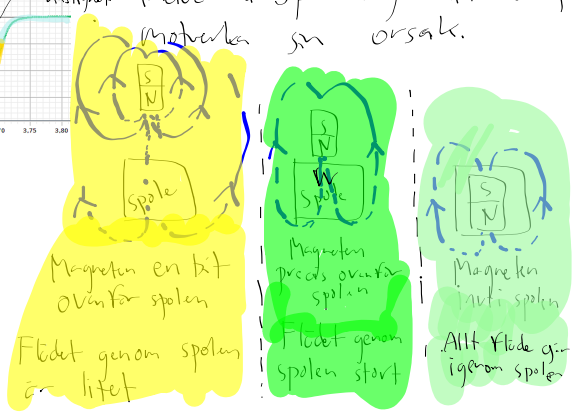 motverka sin orsak.
3.75 3.80
S
N
spole
Magneten en bit
ovanför spolen
Flödet genom spolen
är litet
S
N
spole
Magneten
precis ovanför
spolen
Flödet genom
spolen stort
S
N
Magneten
inuti spolen
Allt flöde går
igenom spolen